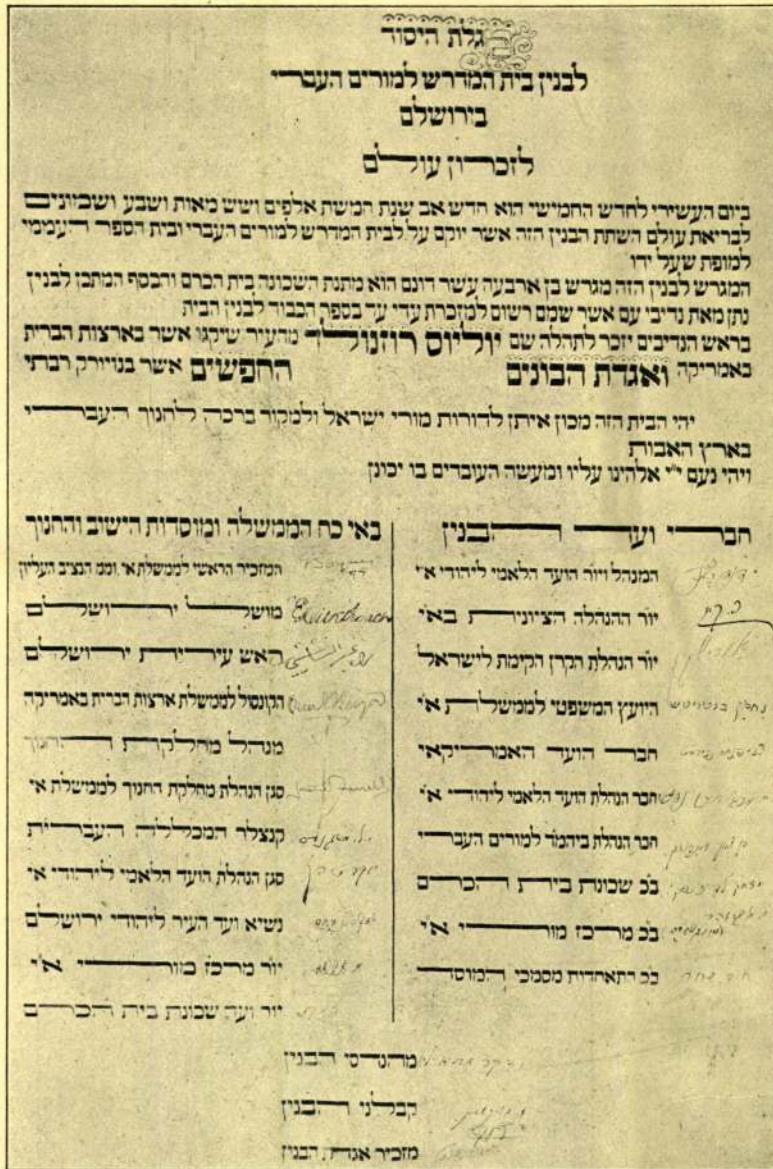 מגלת היסוד
לבנין בית המדרש למורים העברי
בירושלם
לזכרון עולם
ביום העשירי לחדש החמישי הוא חדש אב שנת חמשת אלפים ושש מאות ושבע ושמונים
לבריאת עולם השתת הבנין הזה אשר יוקם על לבית המדרש למורים העברי ובית הספר העממי
למופת שעל ידו
המגרש לבנין הזה מגרש בן ארבעה עשר דונם הוא מתנת השכונה בית הכרם והכסף המתכן לבנין
נתן מאת נדיבי עם אשר שמם רשום למזכרת עדי עד בספר הכבוד לבנין הבית
בראש הנדיבים יזכר לתהלה שם יוליוס רוזנולד מהעיר שיקגו אשר בארצות הברית
באמריקה ואגדת הבונים החפשים אשר בנויורק רבתי
יהי הבית הזה מכון איתן לדורות מורי ישראל ולמקור ברכה לחנוך העברי
בארץ האבות
ויהי נעם י״י אלהינו עליו ומעשה העובדים בו יכונן
חברי ועד הבנין
המנהל ויו״ר הועד הלאמי ליהודי א״י
יו״ר ההנהלה הציונית בא״י
יו״ר הנהלת הקרן הקימת לישראל
היועץ המשפטי לממשלת א״י
חבר הועד האמריקאי
חבר הנהלת הועד הלאמי ליהודי א״י
חבר הנהלת ביהמ״ד למורים העברי
ב״כ שכונת בית הכרם
ב״כ מרכז מורי א״י
ב״כ התאחדות מסמכי המוסד
באי כח הממשלה ומוסדות הישוב והחנוך
המזכיר הראשי לממשלת א״י וממ הנציב העליון
מושל ירושלם
ראש עירית ירושלם
הקונסול לממשלת ארצות הברית באמריקה
מנהל מחלקת החנוך
סגן הנהלת מחלקת החנוך לממשלת א״י
קנצלר המכללה העברית
סגן הנהלת הועד הלאמי ליהודי א״י
נשיא ועד העיר ליהודי ירושלם
יו״ר מרכז מורי א״י
יו״ר ועד שכונת בית הכרם
מהנדסי הבנין
קבלני הבנין
מזכיר אגדת הבנין